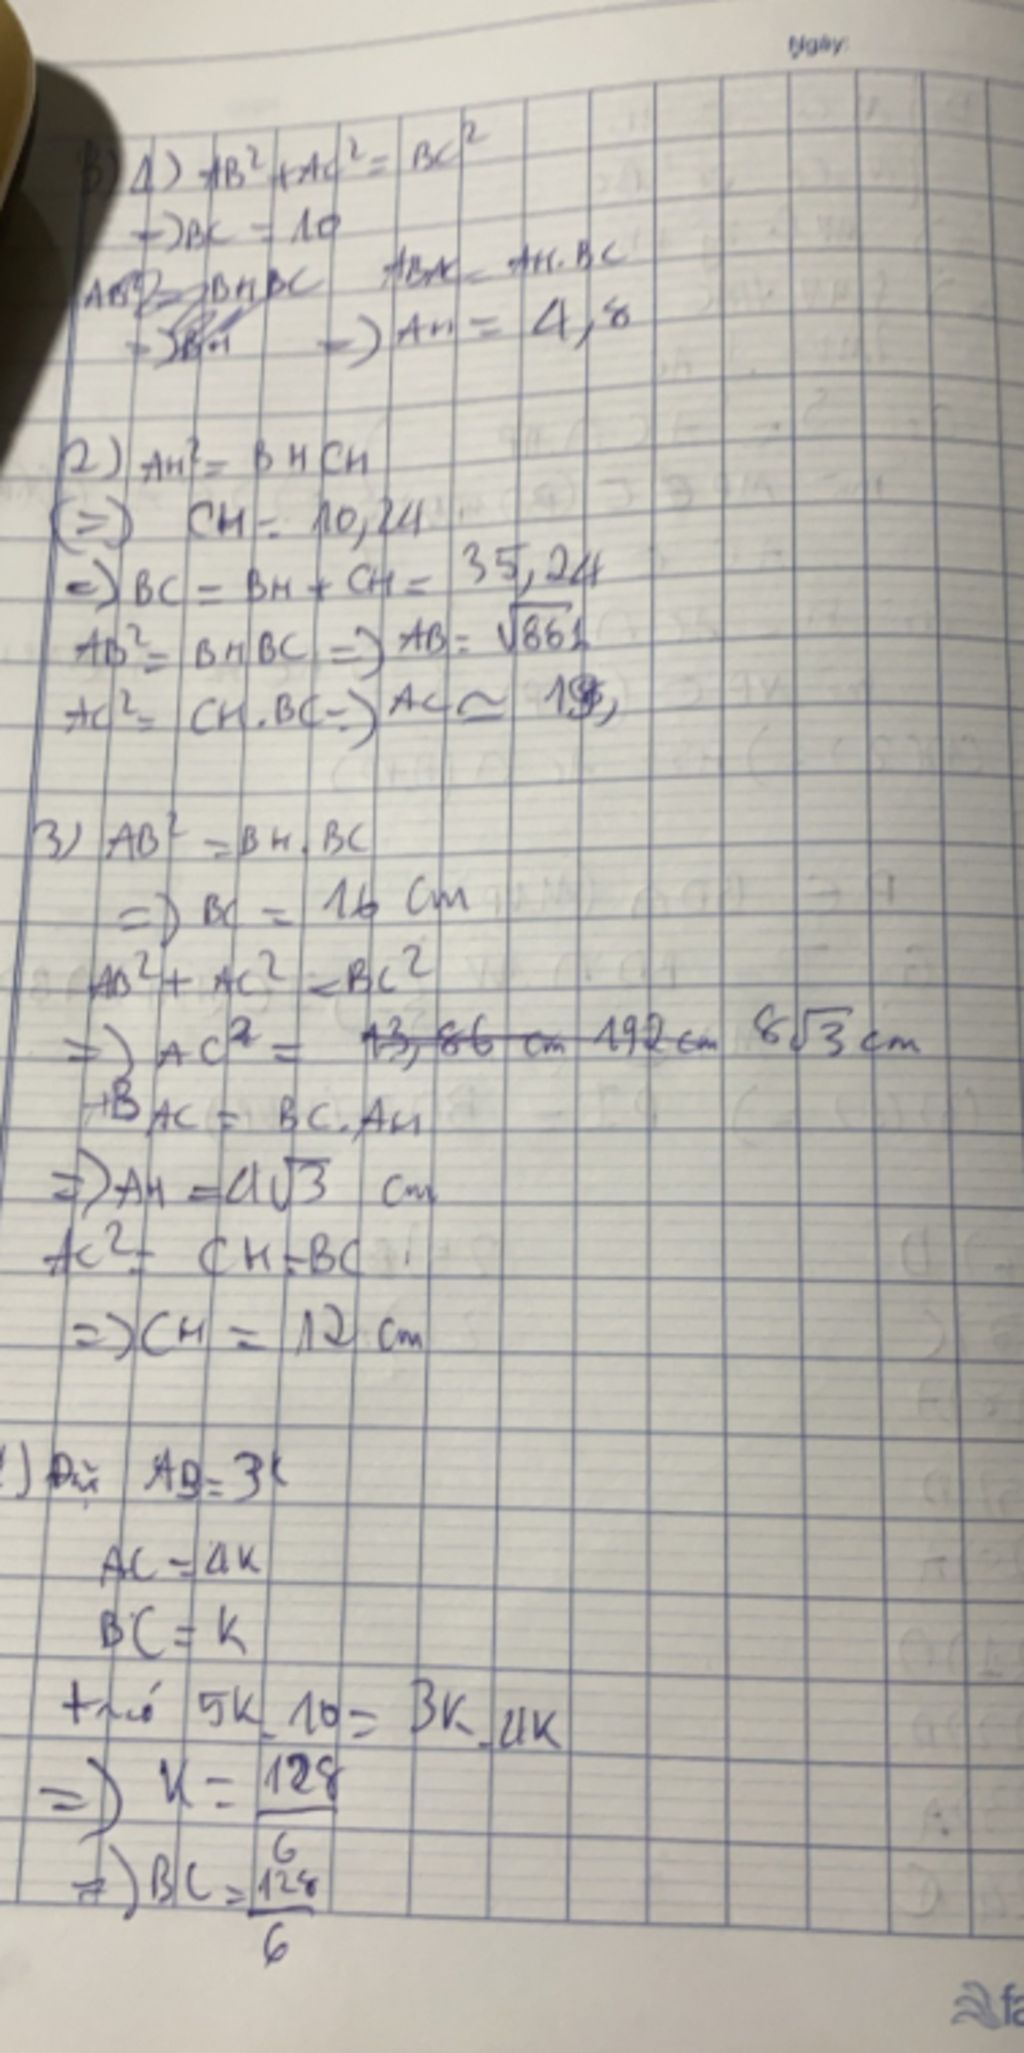 Ngày:
B) 1) AB² + AC² = BC²
=> BC = 10
AB² = BH BC AH.BC
=> BH => AH = 4,8
2) AH² = BH CH
(=) CH = 10,24
=> BC = BH + CH = 35,24
AB² = BH BC => AB = √881
AC² = CH.BC => AC ≃
3) AB² = BH.BC
=> BC = 16 cm
AB² + AC² = BC²
=> AC² = 13,86 cm 192 cm 8√3 cm
AC = BC.AH
=> AH = 4√3 cm
AC² = CH.BC
=> CH = 12 cm
AB = 3k
AC = 4K
BC = K
5K.10 = 3K.4K
=> K = 128/6
=> BC = 128/6
fa